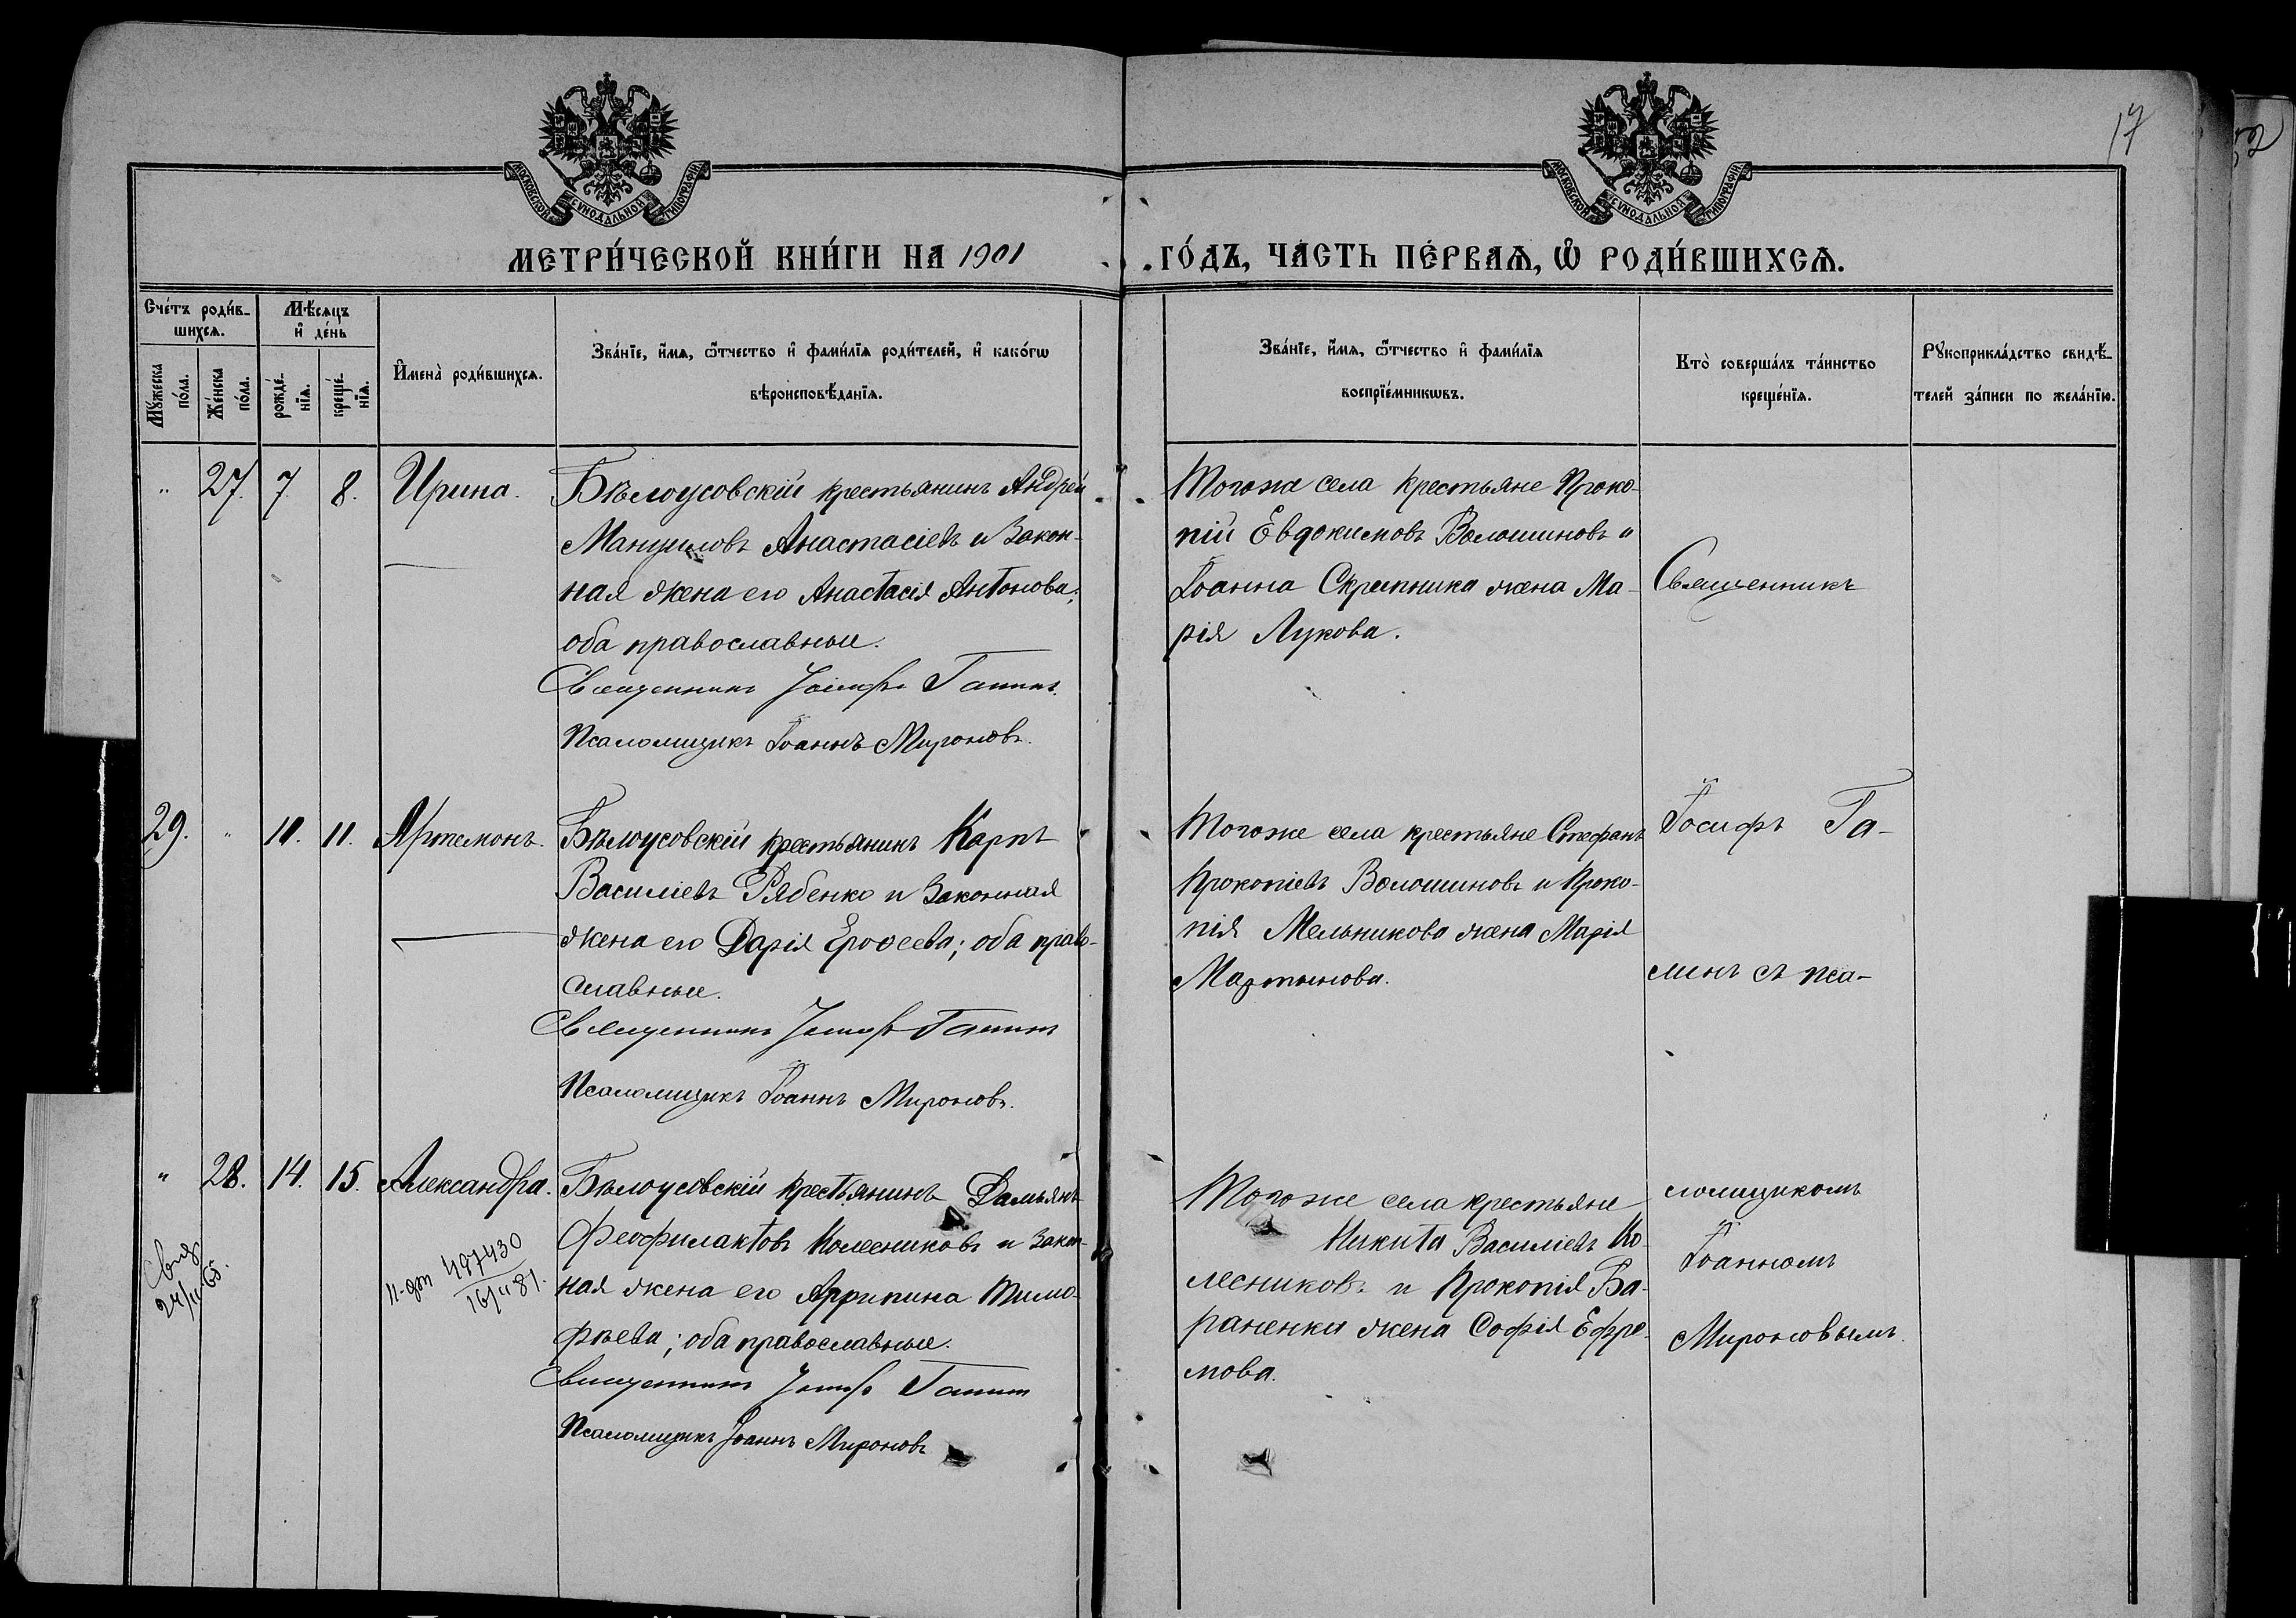 17
МОСКОВСКОЙ СѴНОДАЛЬНОЙ ТИПОГРАФІИ
МОСКОВСКОЙ СѴНОДАЛЬНОЙ ТИПОГРАФІИ
МЕТРИ́ЧЕСКОЙ КНИ́ГИ НА 1901
ГО́ДЪ, ЧАСТЬ ПЕ́РВАѦ, Ѡ РОДИ́ВШИХСѦ.
Сче́тъ роди́в-
шихсѧ.
Мѣ́сѧцъ
и҆ де́нь
Мꙋ́жеска
по́ла.
Же́нска
по́ла.
рожде́-
нїѧ.
креще́-
нїѧ.
И҆мена̀ роди́вшихсѧ.
Зва́нїе, и҆́мѧ, ѻ҆́тчество и҆ фами́лїѧ роди́телей, и҆ како́гѡ
вѣроисповѣ́данїѧ.
Зва́нїе, и҆́мѧ, ѻ҆́тчество и҆ фами́лїѧ
воспрїе́мникѡвъ.
Кто̀ соверша́лъ та́инство
креще́нїѧ.
Рꙋкоприкла́дство свидѣ́-
телей за́писи по жела́нїю.
" 27. 7. 8. Ирина.
Бѣлоусовскій крестьянинъ Андрей
Анастасіевъ и Закон-
ная жена его Анастасія Антонова;
оба православные.
Священникъ Іосифъ Галинъ.
Псаломщикъ Іоаннъ Мироновъ.
Тогоже села крестьяне Проко-
пій Евдокимовъ Волошиновъ и
Іоанна Скрипника жена Ма-
рія Лукова.
Священникъ
29. " 10. 11. Артемонъ.
Бѣлоусовскій крестьянинъ Карпъ
Василіевъ Рябенко и Законная
жена его Дарія Ерофеева; оба право-
славные.
Священникъ Іосифъ Галинъ
Псаломщикъ Іоаннъ Мироновъ.
Тогоже села крестьяне Стефанъ
Прокопіевъ Волошиновъ и Проко-
пія Мельникова жена Марія
Мартынова.
Іосифъ Га-
линъ съ пса-
" 28. 14. 15. Александра.
Бѣлоусовскій крестьянинъ Дамьянъ
Феофилактовъ Колесниковъ и Закон-
ная жена его Агрипина Тимо-
фѣева; оба православные.
Священникъ Іосифъ Галинъ
Псаломщикъ Іоаннъ Мироновъ
Тогоже села крестьяне
Никита Василіевъ Ко-
лесниковъ и Прокопія Ба-
раненка жена Софія Ефре-
мова.
ломщикомъ
Іоанномъ
Мироновымъ.
497430
16/II 81.